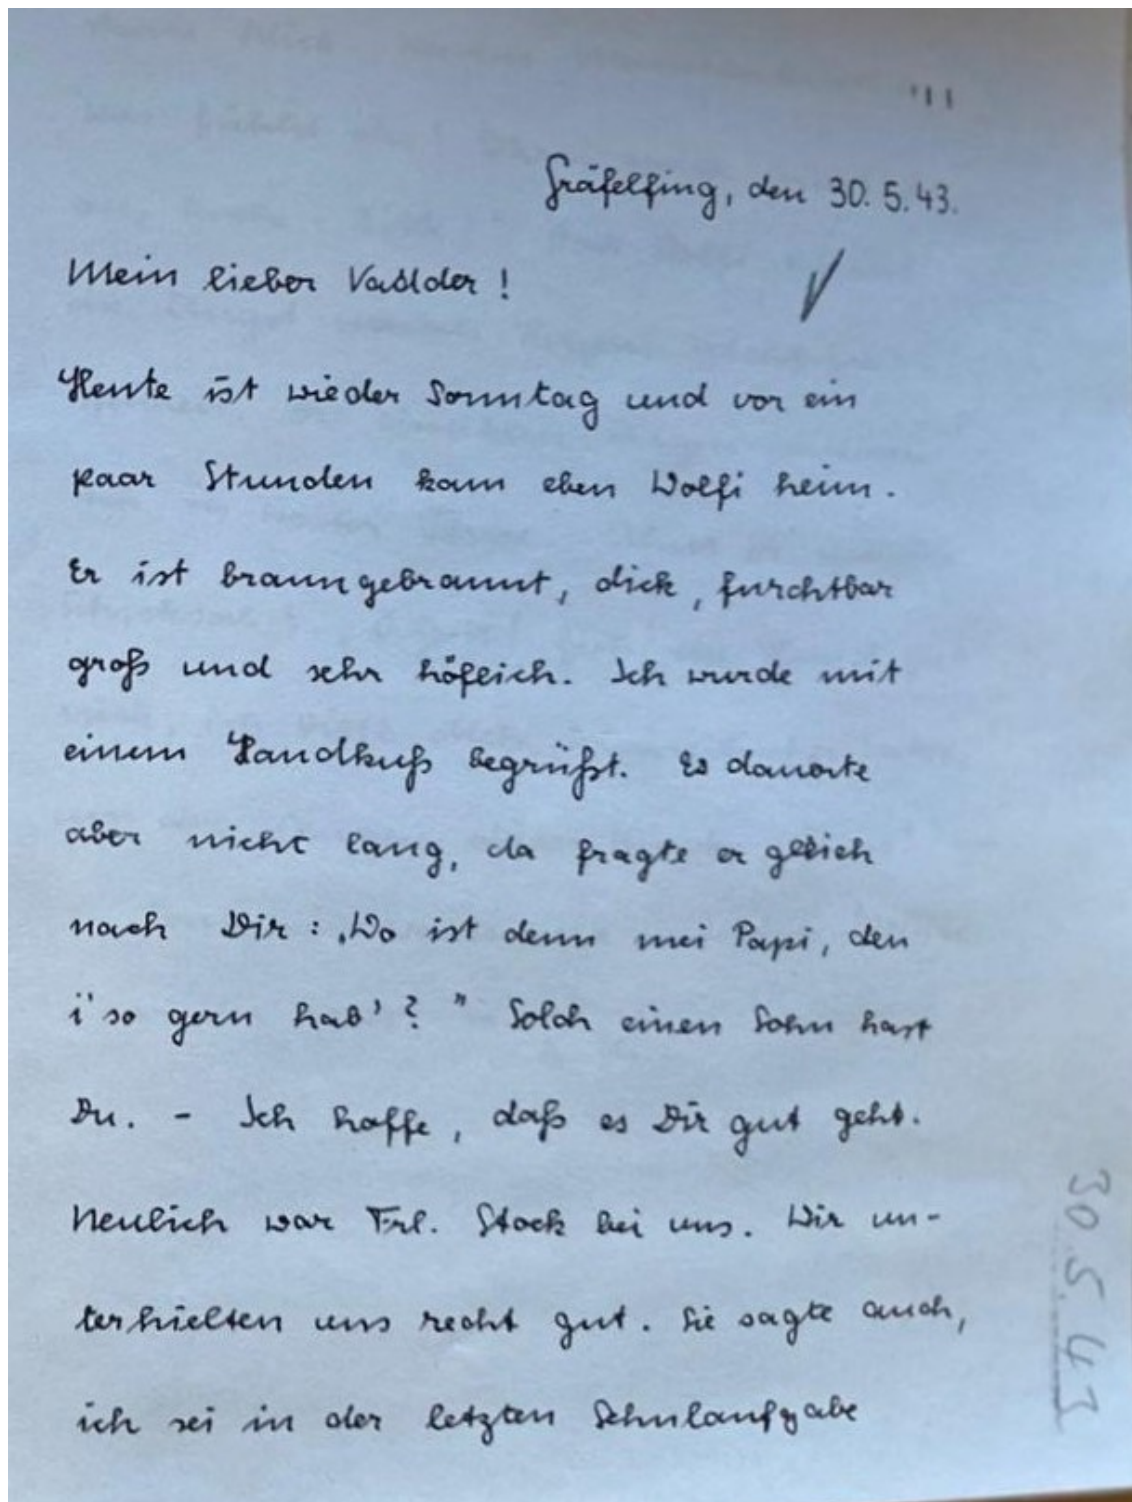 Gräfelfing, den 30.5.43.
Mein lieber Vadder!
Heute ist wieder Sonntag und vor ein
paar Stunden kam eben Wolfi heim.
Er ist braungebrannt, dick, furchtbar
groß und sehr höflich. Ich wurde mit
einem Handkuß begrüßt. Es dauerte
aber nicht lang, da fragte er gleich
nach Dir: „Wo ist denn mei Papi, den
i' so gern hab'?" Solch einen Sohn hast
Du. - Ich hoffe, daß es Dir gut geht.
Neulich war Frl. Stock bei uns. Wir un-
terhielten uns recht gut. Sie sagte auch,
ich sei in der letzten Schulaufgabe
30.5.43